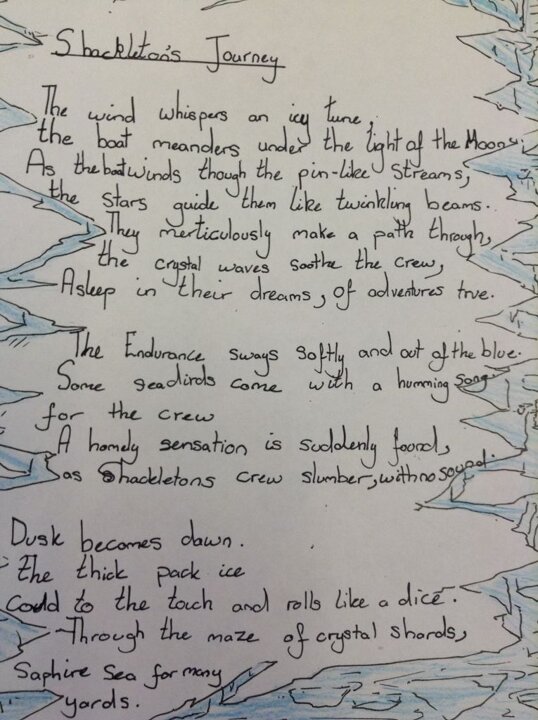 Shackleton's Journey
The wind whispers an icy tune,
the boat meanders under the light of the Moon,
As the boat winds though the pin-like streams,
the stars guide them like twinkling beams.
They merticulously make a path through,
the crystal waves soothe the crew,
Asleep in their dreams, of adventures true.
The Endurance sways softly and out of the blue.
Some seadirds come with a humming song
for the crew
A homely sensation is suddenly found,
as Shackletons crew slumber, with no sound.
Dusk becomes dawn.
the thick pack ice
Could to the touch and rolls like a dice.
Through the maze of crystal shards,
Saphire Sea for many
yards.